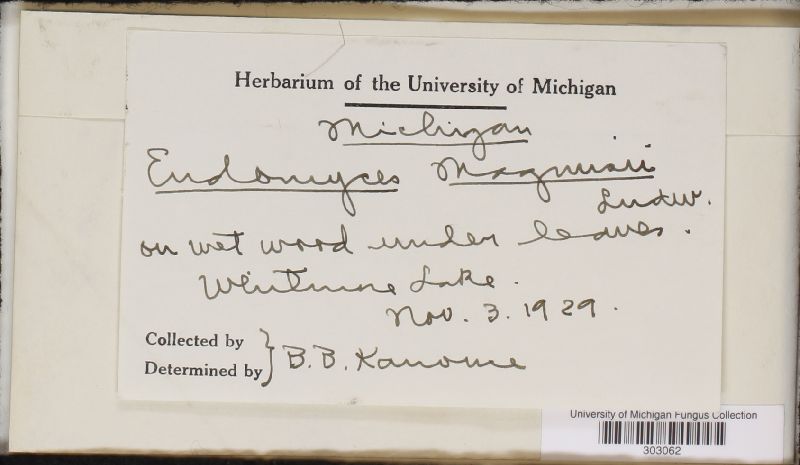 Herbarium of the University of Michigan
Michigan
Endomyces Magnusii
Ludw.
on wet wood under leaves.
Whitmore Lake.
Nov. 3. 1929.
Collected by
Determined by } B. B. Kanouse
University of Michigan Fungus Collection
303062